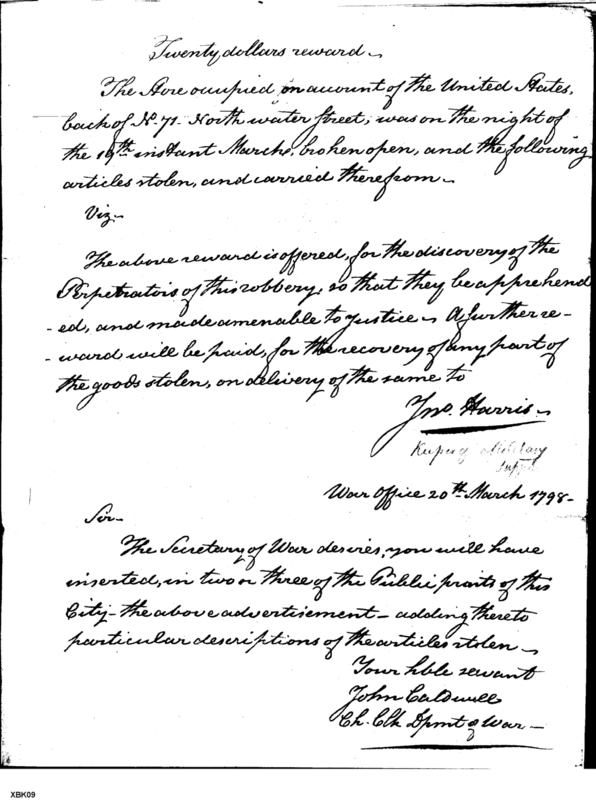 Twenty dollars reward –
The Store occupied, on account of the United States,
back of No. 71. North water street, was on the night of
the 19th instant March, broken open, and the following
articles stolen, and carried therefrom –
Viz –
The above reward is offered, for the discovery of the
Perpetrators of this robbery, so that they be apprehend
- ed, and made amenable to Justice – A further re-
- ward will be paid, for the recovery of any part of
the goods stolen, on delivery of the same to
Jno. Harris –
Keeper of Military
Supp
War Office 20th March 1798 –
Sir –
The Secretary of War desires, you will have
inserted, in two or three of the Public prints of this
City – the above advertisement – adding thereto
particular descriptions of the articles stolen –
Your hble servant
John Caldwell
Ch. Clk Dpmt of War –
XBK09